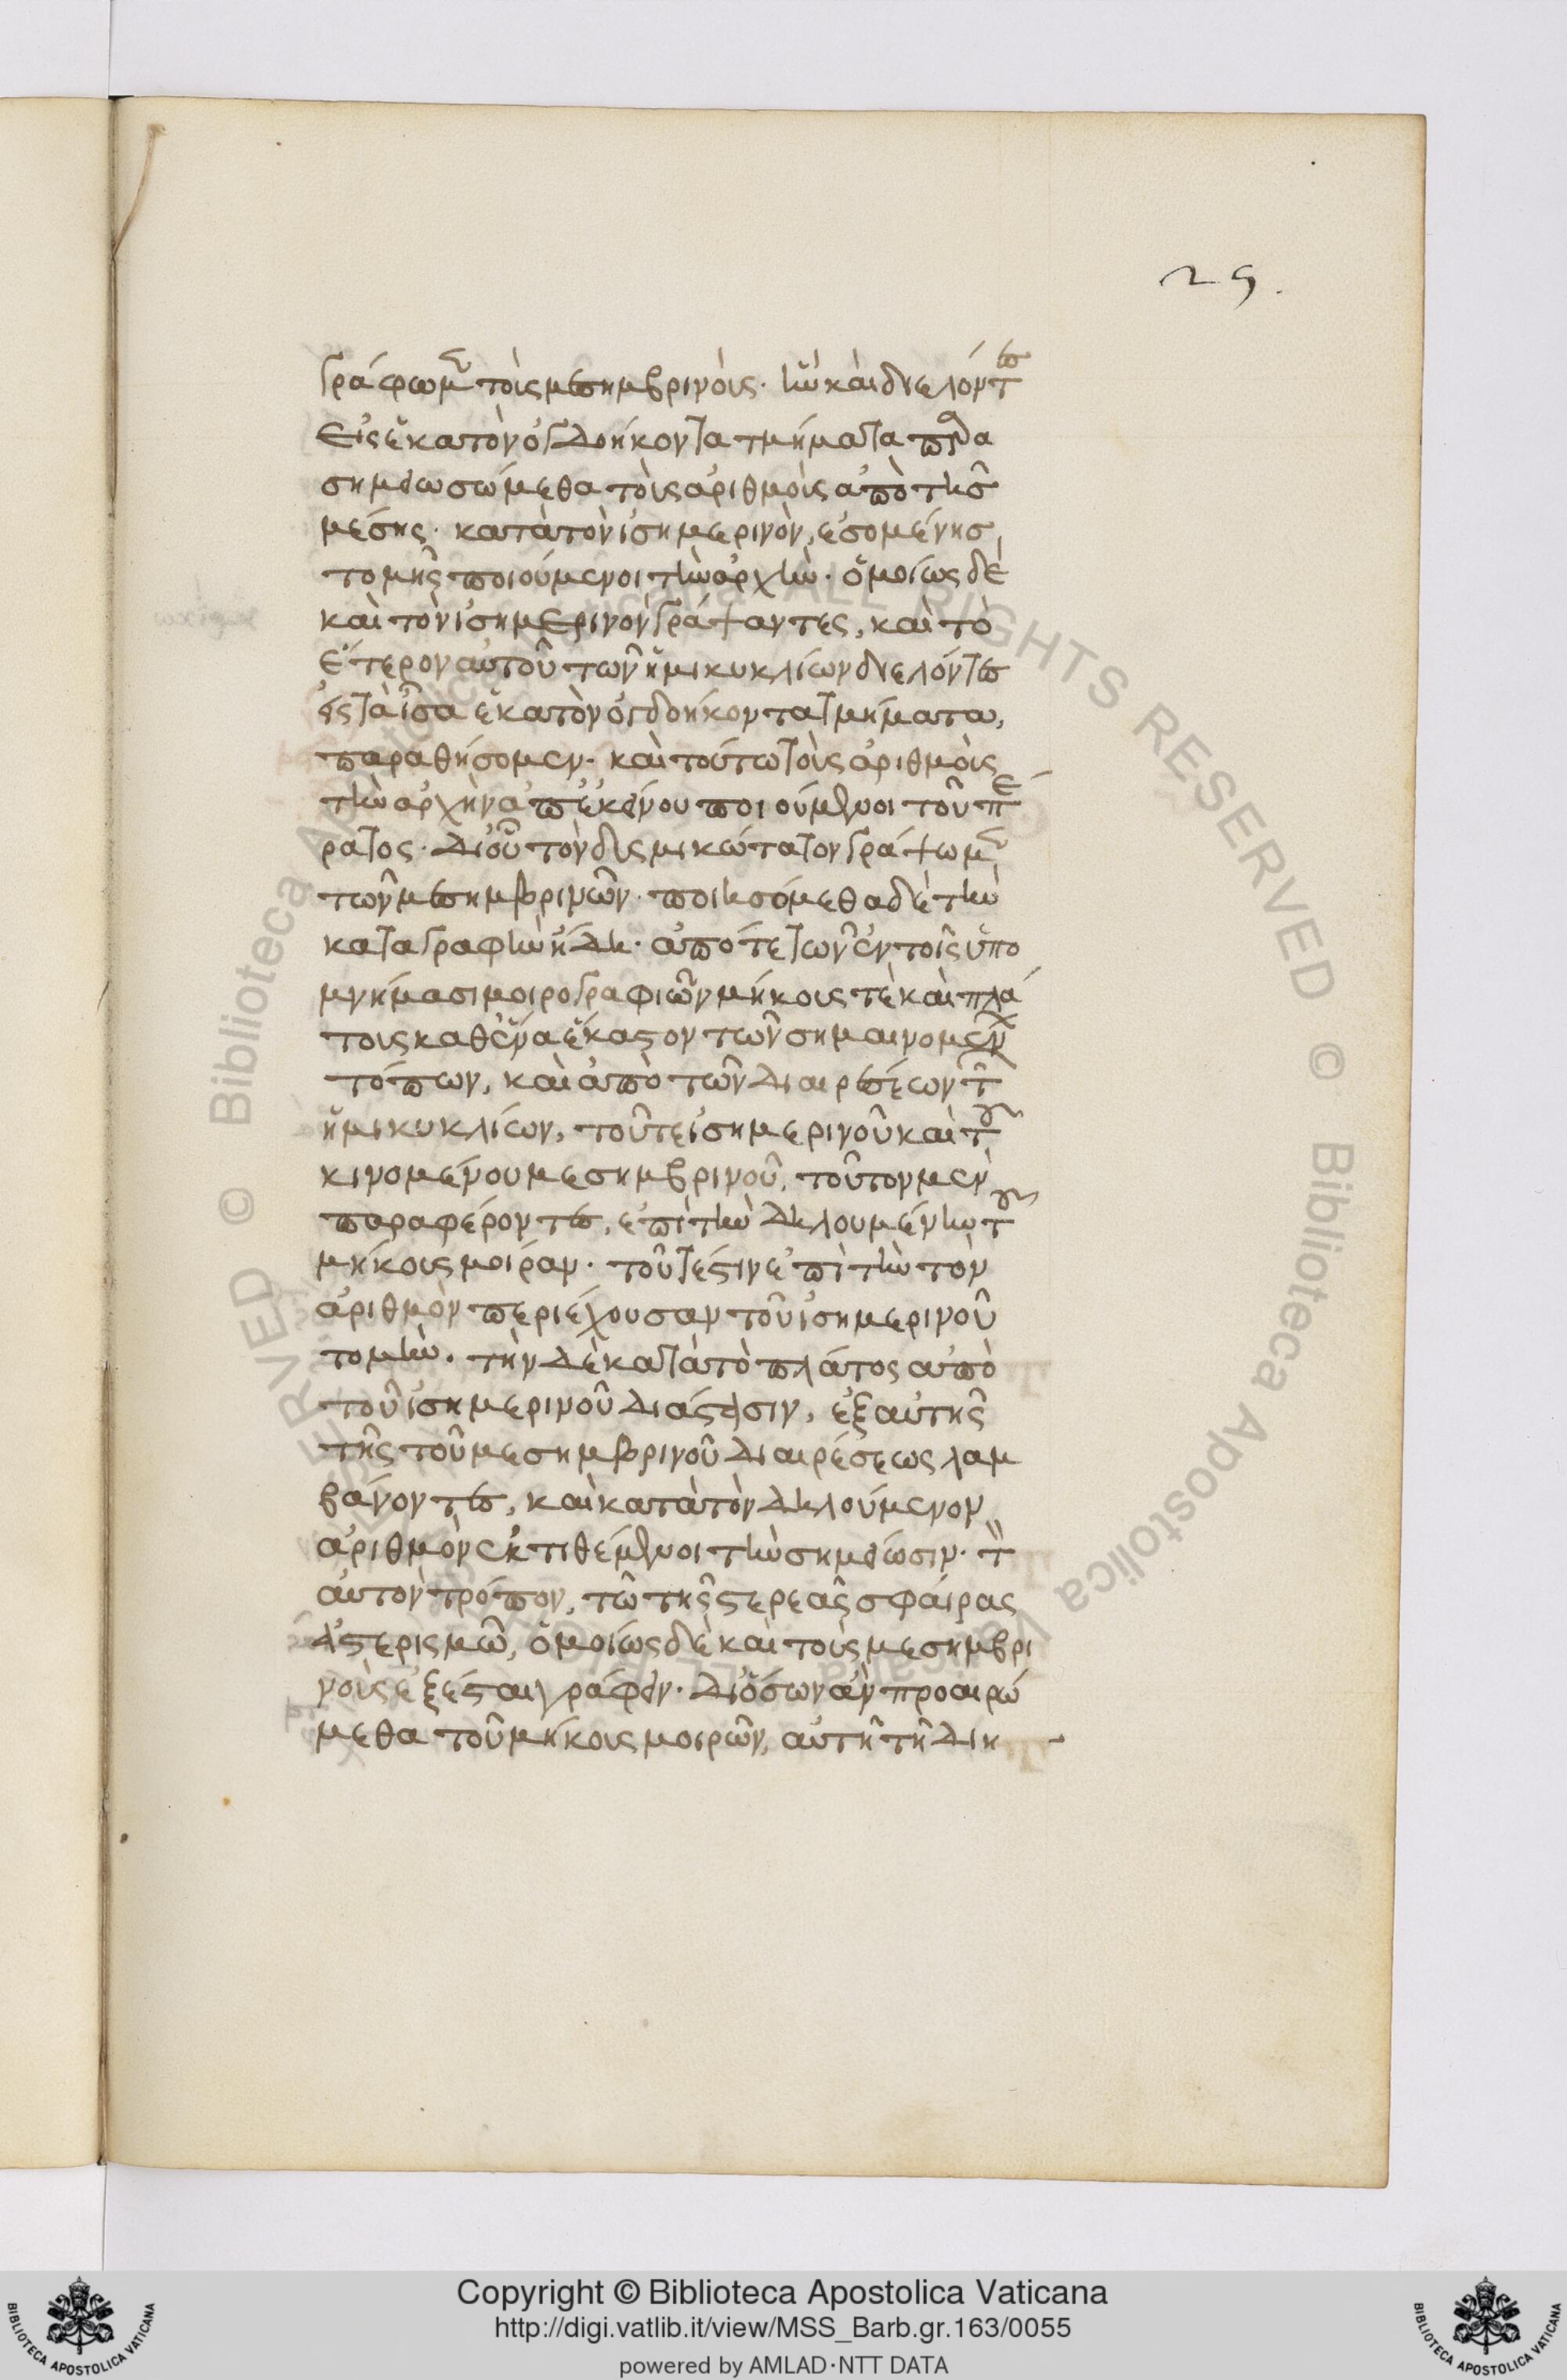 25.
γράφωμεν τοὺς μεσημβρινούς· ἣν καὶ διελόντες
εἰς ἑκατὸν ὀγδοήκοντα τμήματα
σημειωσώμεθα τοὺς ἀριθμοὺς ἀπὸ τῆς
μέσης· κατὰ τὸν ἰσημερινὸν, ἐσομένης
τομῆς ποιούμενοι τὴν ἀρχήν· ὁμοίως δὲ
καὶ τὸν ἰσημερινὸν γράψαντες, καὶ τὸ
ἕτερον αὐτοῦ τῶν ἡμικυκλίων διελόντες
εἰς τὰ ἴσα ἑκατὸν ὀγδοήκοντα τμήματα,
παραθήσομεν· καὶ τούτω τοὺς ἀριθμοὺς
τὴν ἀρχὴν ἀπ' ἐκείνου ποιούμενοι τοῦ πέ
ρατος· δι' οὗ τὸν δυσμικώτατον γράψωμεν
τῶν μεσημβρινῶν· ποιησόμεθα δὲ τὴν
καταγραφὴν ἤδη· ἀπό τε τῶν ἐν τοῖς ὑπο
μνήμασι μοιρογραφιῶν μήκους τε καὶ πλά
τους καθ' ἕνα ἕκαστον τῶν σημαινομένων
τόπων, καὶ ἀπὸ τῶν διαιρέσεων τῶν
ἡμικυκλίων, τοῦ τε ἰσημερινοῦ καὶ τοῦ
κινομένου μεσημβρινοῦ, τοῦτον μὲν
παραφέροντες, ἐπὶ τὴν δηλουμένην τοῦ
μήκους μοίραν· τουτέστιν ἐπὶ τὴν τὸν
ἀριθμὸν περιέχουσαν τοῦ ἰσημερινοῦ
τομήν. τὴν δὲ κατὰ τὸ πλάτος ἀπὸ
τοῦ ἰσημερινοῦ διάστησιν, ἐξ αὐτῆς
τῆς τοῦ μεσημβρινοῦ διαιρέσεως λαμ
βάνοντες, καὶ κατὰ τὸν δηλούμενον
ἀριθμὸν ἐκτιθέμενοι τὴν σημείωσιν· τὸν
αὐτὸν τρόπον, τῶ τῆς στερεᾶς σφαίρας
ἀστερισμῶ, ὁμοίως δὲ καὶ τοὺς μεσημβρι
νοὺς ἐξέσται γράφειν· δι' ὅσων ἂν προαιρώ
μεθα τοῦ μήκους μοιρῶν, αὐτῆ τῆ διη
Copyright © Biblioteca Apostolica Vaticana
http://digi.vatlib.it/view/MSS_Barb.gr.163/0055
powered by AMLAD·NTT DATA